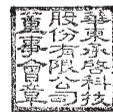 華東承啟科技
股份有限公司
董事會章